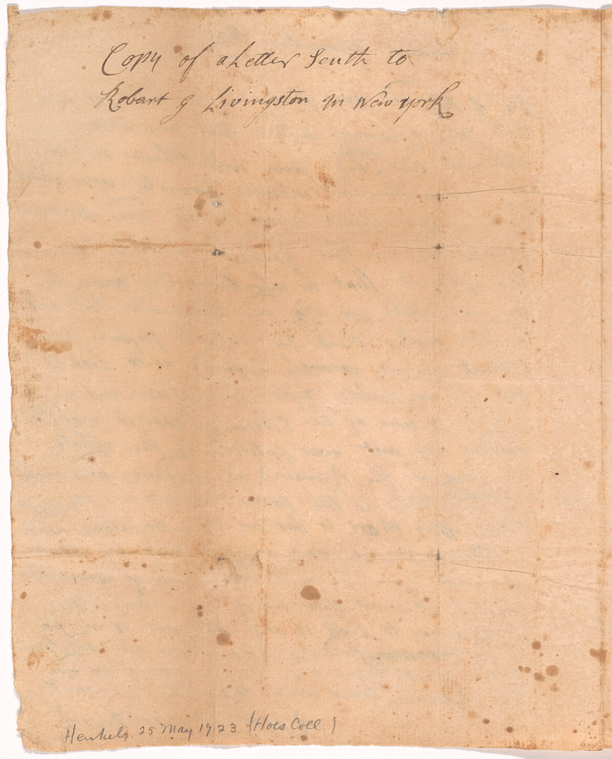 Copy of a Letter Senth to
Robart g Livingston in New york
Henkels. 25 May 1923 (Hoes Coll.)